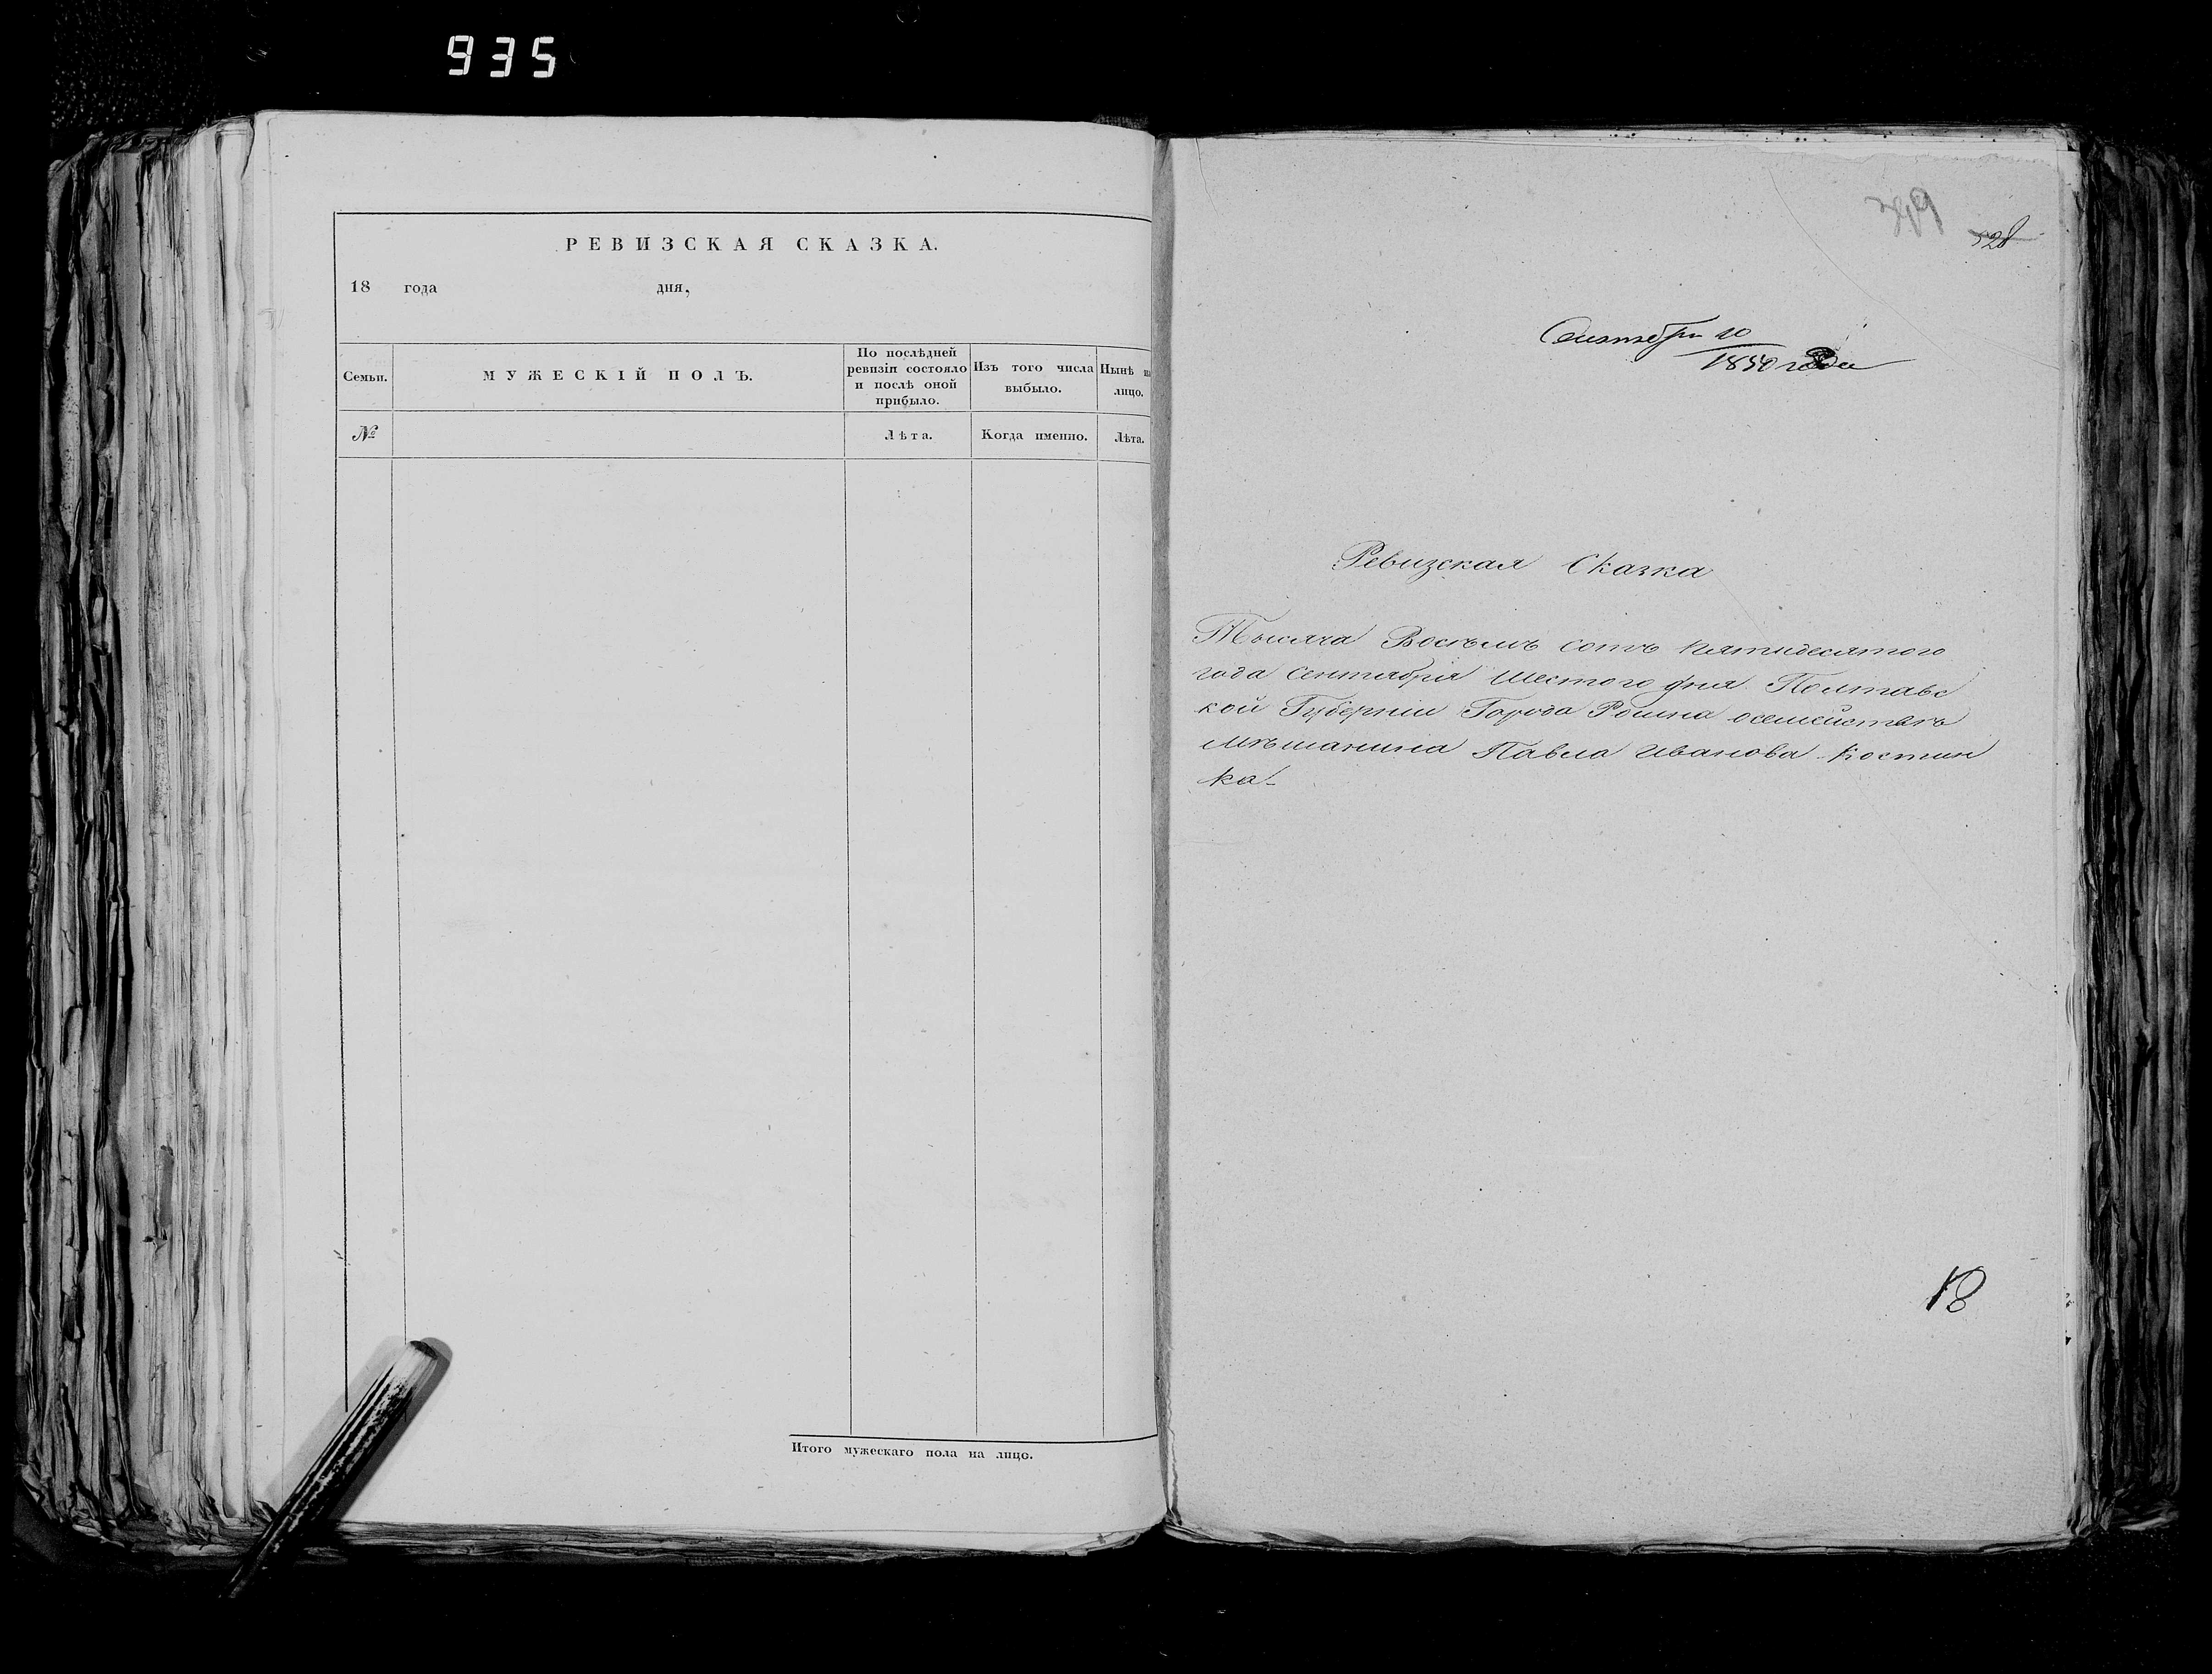 935
РЕВИЗСКАЯ СКАЗКА.
18 года дня,
Семьи.
МУЖЕСКІЙ ПОЛЪ.
По послѣдней
ревизіи состояло
и послѣ оной
прибыло.
Изъ того числа
выбыло.
Нынѣ на
лицо.
№
Лѣта.
Когда именно.
Лѣта.
Итого мужескаго пола на лицо.
349
528
Сентября 10
1850 года
Ревизская Сказка
Тысяча Восѣмъ сотъ пятидесятого
года Сентября шестого дня Полтавс
кой Губерніи Города Ромна
мѣщанина Павла Иванова Костин
ка
18